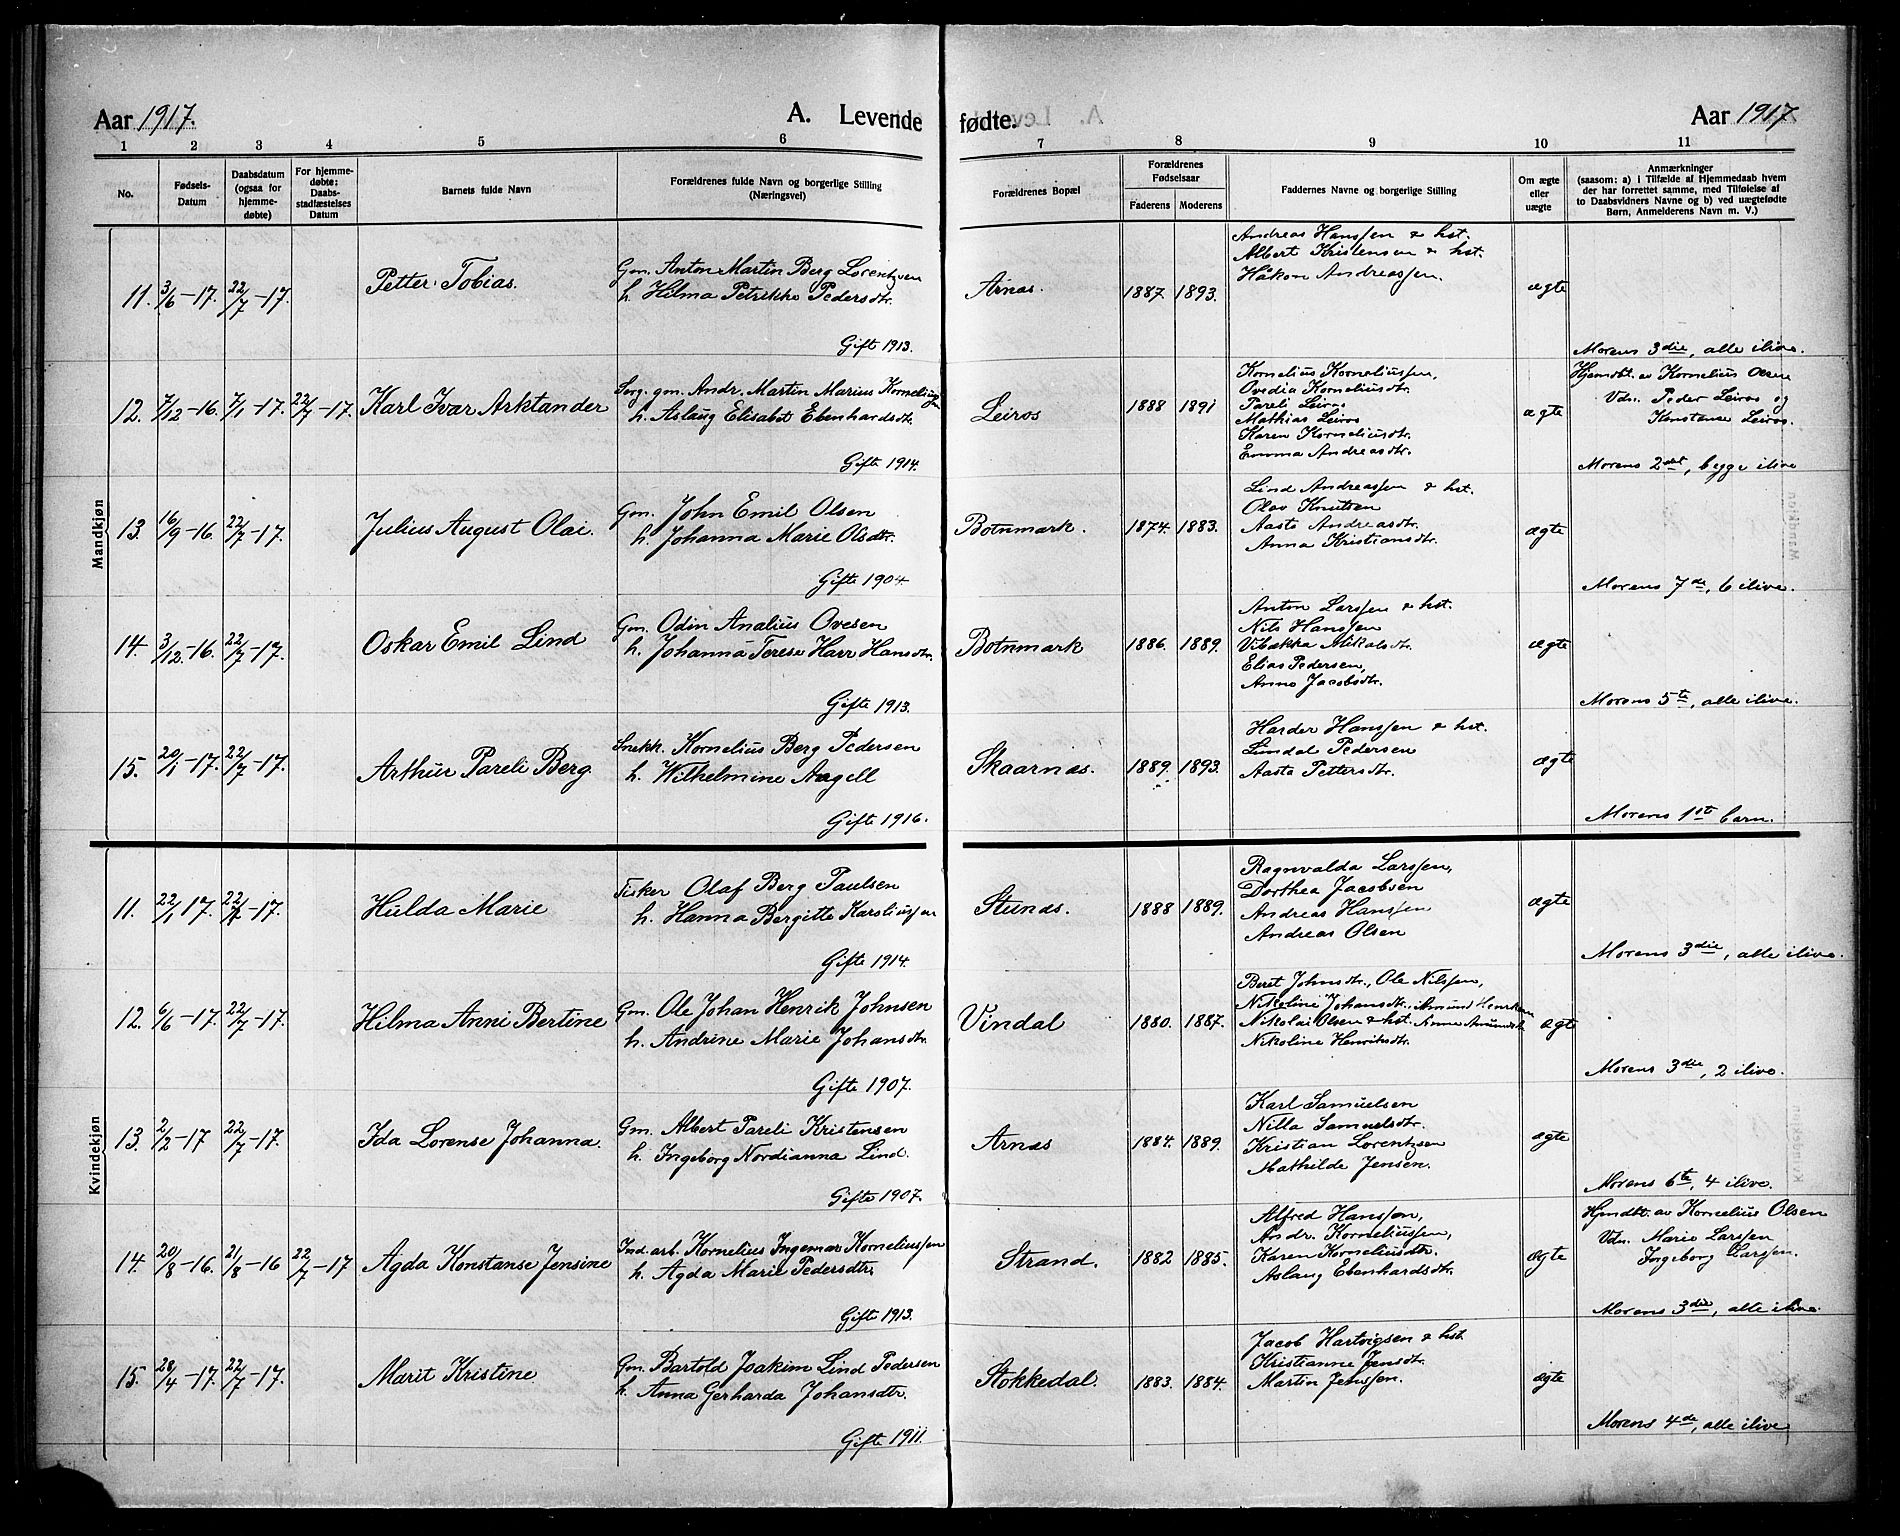 Aar 1917.
A. Levende fødte.
Aar 1917
1 2 3 4 5 6 7 8 9 10 11
No.
Fødsels-
Datum
Daabsdatum
(ogsaa for
hjemme-
døbte)
For hjemme-
døbte;
Daabs-
stadfæstelses
Datum
Barnets fulde Navn
Forældrenes fulde Navn og borgerlige Stilling
(Næringsvei)
Forældrenes Bopæl
Forældrenes
Fødselsaar
Faderens Moderens
Faddernes Navne og borgerlige Stilling
Om ægte
eller
uægte
Anmærkninger
(saasom: a) i Tilfælde af Hjemmedaab hvem
der har forrettet samme, med Tilføielse af
to Daabsvidners Navne og b) ved uægtefødte
Børn, Anmelderens Navn m. V.)
Mandkjøn
11. 3/6-17. 22/7-17.
Petter Tobias.
Gm. Anton Martin Berg Lorentzen
h. Hilma Petrikke Pedersdtr.
Gifte 1913.
Arnas.
1887 1893.
Andreas Hanssen & hst.
Albert Kristensen & hst.
Håkon Andreassen.
ægte
Morens 3die, alle ilive.
12. 7/12-16. 7/1-17. 22/7-17.
Karl Ivar Arktander
Sørg. gm. Andr. Martin Marius Korneliussen
h. Aslaug Elisabet Ebenhardsdtr.
Gifte 1914.
Leiros
1888 1891
Kornelius Korneliussen,
Ovedia Korneliusdtr.
Pareli Leiros
Mathias Leiros
Karen Korneliusdtr.
Emma Andreasdtr.
ægte
Hjemdbt. av Kornelius Olsen
Vdn. Peder Leiros og
Konstanse Leiros.
Morens 2det, begge ilive
13. 16/9-16. 22/7-17.
Julius August Olai.
Gm. John Emil Olsen
h. Johanna Marie Olsdtr.
Gifte 1904.
Botnmark.
1874. 1883.
Lind Andreassen & hst.
Olav Knutsen
Aasta Andreasdtr.
Anna Kristiansdtr.
ægte
Morens 7de, 6 ilive.
14. 3/12-16. 22/7-17.
Oskar Emil Lind
Gm. Odin Analius Ovesen
h. Johanna Terese Harr Hansdtr.
Gifte 1913.
Botnmark
1886. 1889.
Anton Larssen & hst.
Nils Hanssen
Vibekka Nikolsdtr.
Elias Pedersen,
Anna Jacobsdtr.
ægte
Morens 5te, alle ilive.
15. 20/1-17. 22/7-17.
Arthur Pareli Berg.
Snekk. Kornelius Berg Pedersen
h. Wilhelmine Angell
Gifte 1916.
Skaarnas.
1889. 1893.
Harder Hanssen & hst.
Lindal Pedersen
Aasta Pettersdtr.
ægte
Morens 1ste barn.
Kvindekjøn
11. 22/1 17. 22/7-17.
Hulda Marie
Fisker Olaf Berg Paulsen
h. Hanna Bergitte Karoliussen
Gifte 1914.
Stunas.
1888 1889.
Ragnvalda Larssen,
Dorthea Jacobsen
Andreas Hanssen
Andreas Olsen
ægte
Morens 3die, alle ilive.
12. 6/6-17. 22/7-17.
Hilma Anni Bertine
Gm. Ole Johan Henrik Johnsen
h. Andrine Marie Johansdtr.
Gifte 1907.
Vindal
1880. 1887.
Beret Johnsdtr., Ole Nilssen,
Nikoline Johansdtr., Amund Henriksen
Nikolai Olsen & hst. Anne Amundsdtr.
Nikoline Henriksdtr.
ægte
Morens 3die, 2 ilive.
13. 2/2-17 22/7-17.
Ida Lorense Johanna.
Gm. Albert Pareli Kristensen
h. Ingeborg Nordianna Lind.
Gifte 1907.
Arnas
1884. 1889.
Karl Samuelsen
Nilla Samuelsdtr.
Kristian Lorentzen
Mathilde Jensen.
ægte
Morens 6te, 4 ilive.
14. 20/8-16. 21/8-16 22/7-17
Agda Konstanse Jensine
Ind. arb. Kornelius Ingemar Korneliussen
h. Agda Marie Pedersdtr.
Gifte 1913.
Strand.
1882 1885.
Alfred Hanssen,
Andr. Korneliussen,
Karen Korneliusdtr.
Aslaug Ebenhardsdtr.
ægte
Hjemdbt. av Kornelius Olsen
Vdn. Marie Larssen
Ingeborg Larssen.
Morens 3die, alle ilive.
15. 28/4-17. 22/7-17.
Marit Kristine
Gm. Bartold Joakim Lind Pedersen
h. Anna Gerharda Johansdtr.
Gifte 1911.
Stokkedal.
1883. 1884.
Jacob Hartvigsen & hst.
Kristianne Jensdtr.
Martin Jenssen.
ægte
Morens 4de, alle ilive